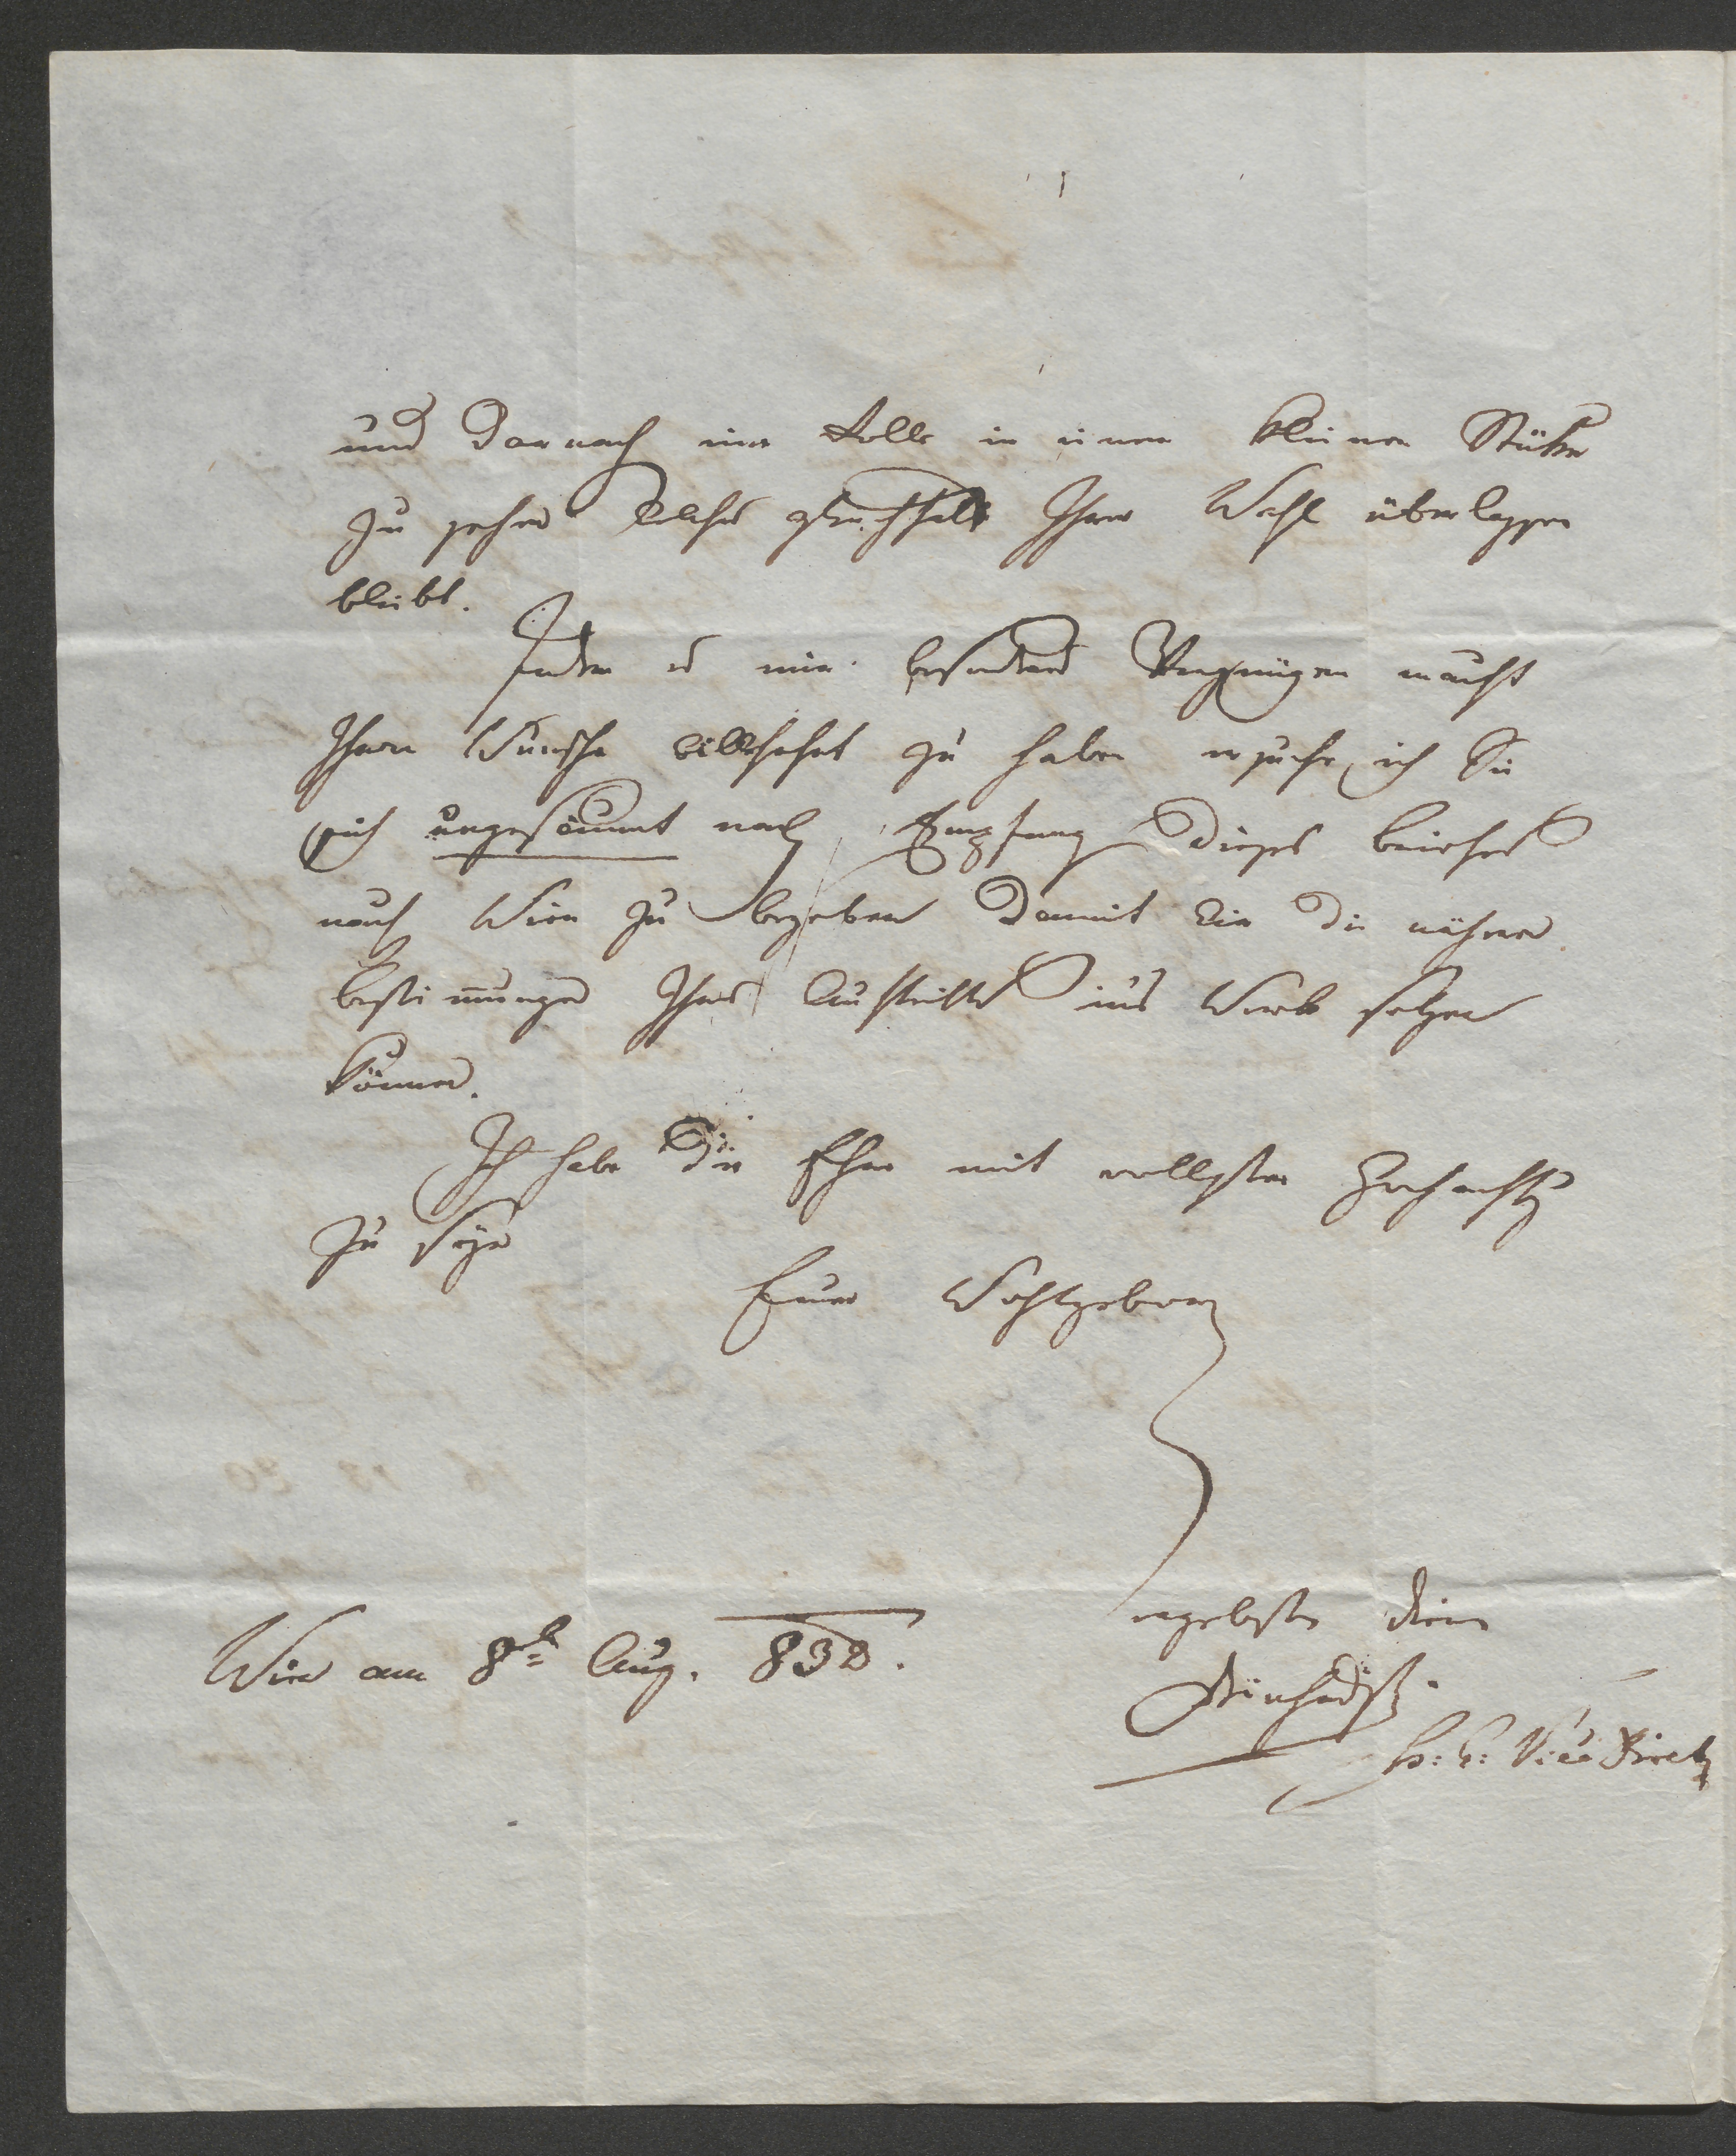 und darnach eine Rolle in einem kleinen Stüke
zu geben welches gleichfalls Ihrer Wahl überlassen
bleibt.
Indem es mir besonderes Vergnügen macht
Ihrem Wunsche willfahrt zu haben ersuche ich Sie
sich ungesäumt nach Empfang dieses Briefes
nach Wien zu begeben damit wir die nähern
Bestimmungen Ihres Auftrittes ins Werk setzen
können.
Ich habe die Ehre mit vollester Hochachtg
zu seyn
Euer Wohlgeboren
ergebster Diener
Wien am 8t Aug. 838.
k: k: Vice Direct